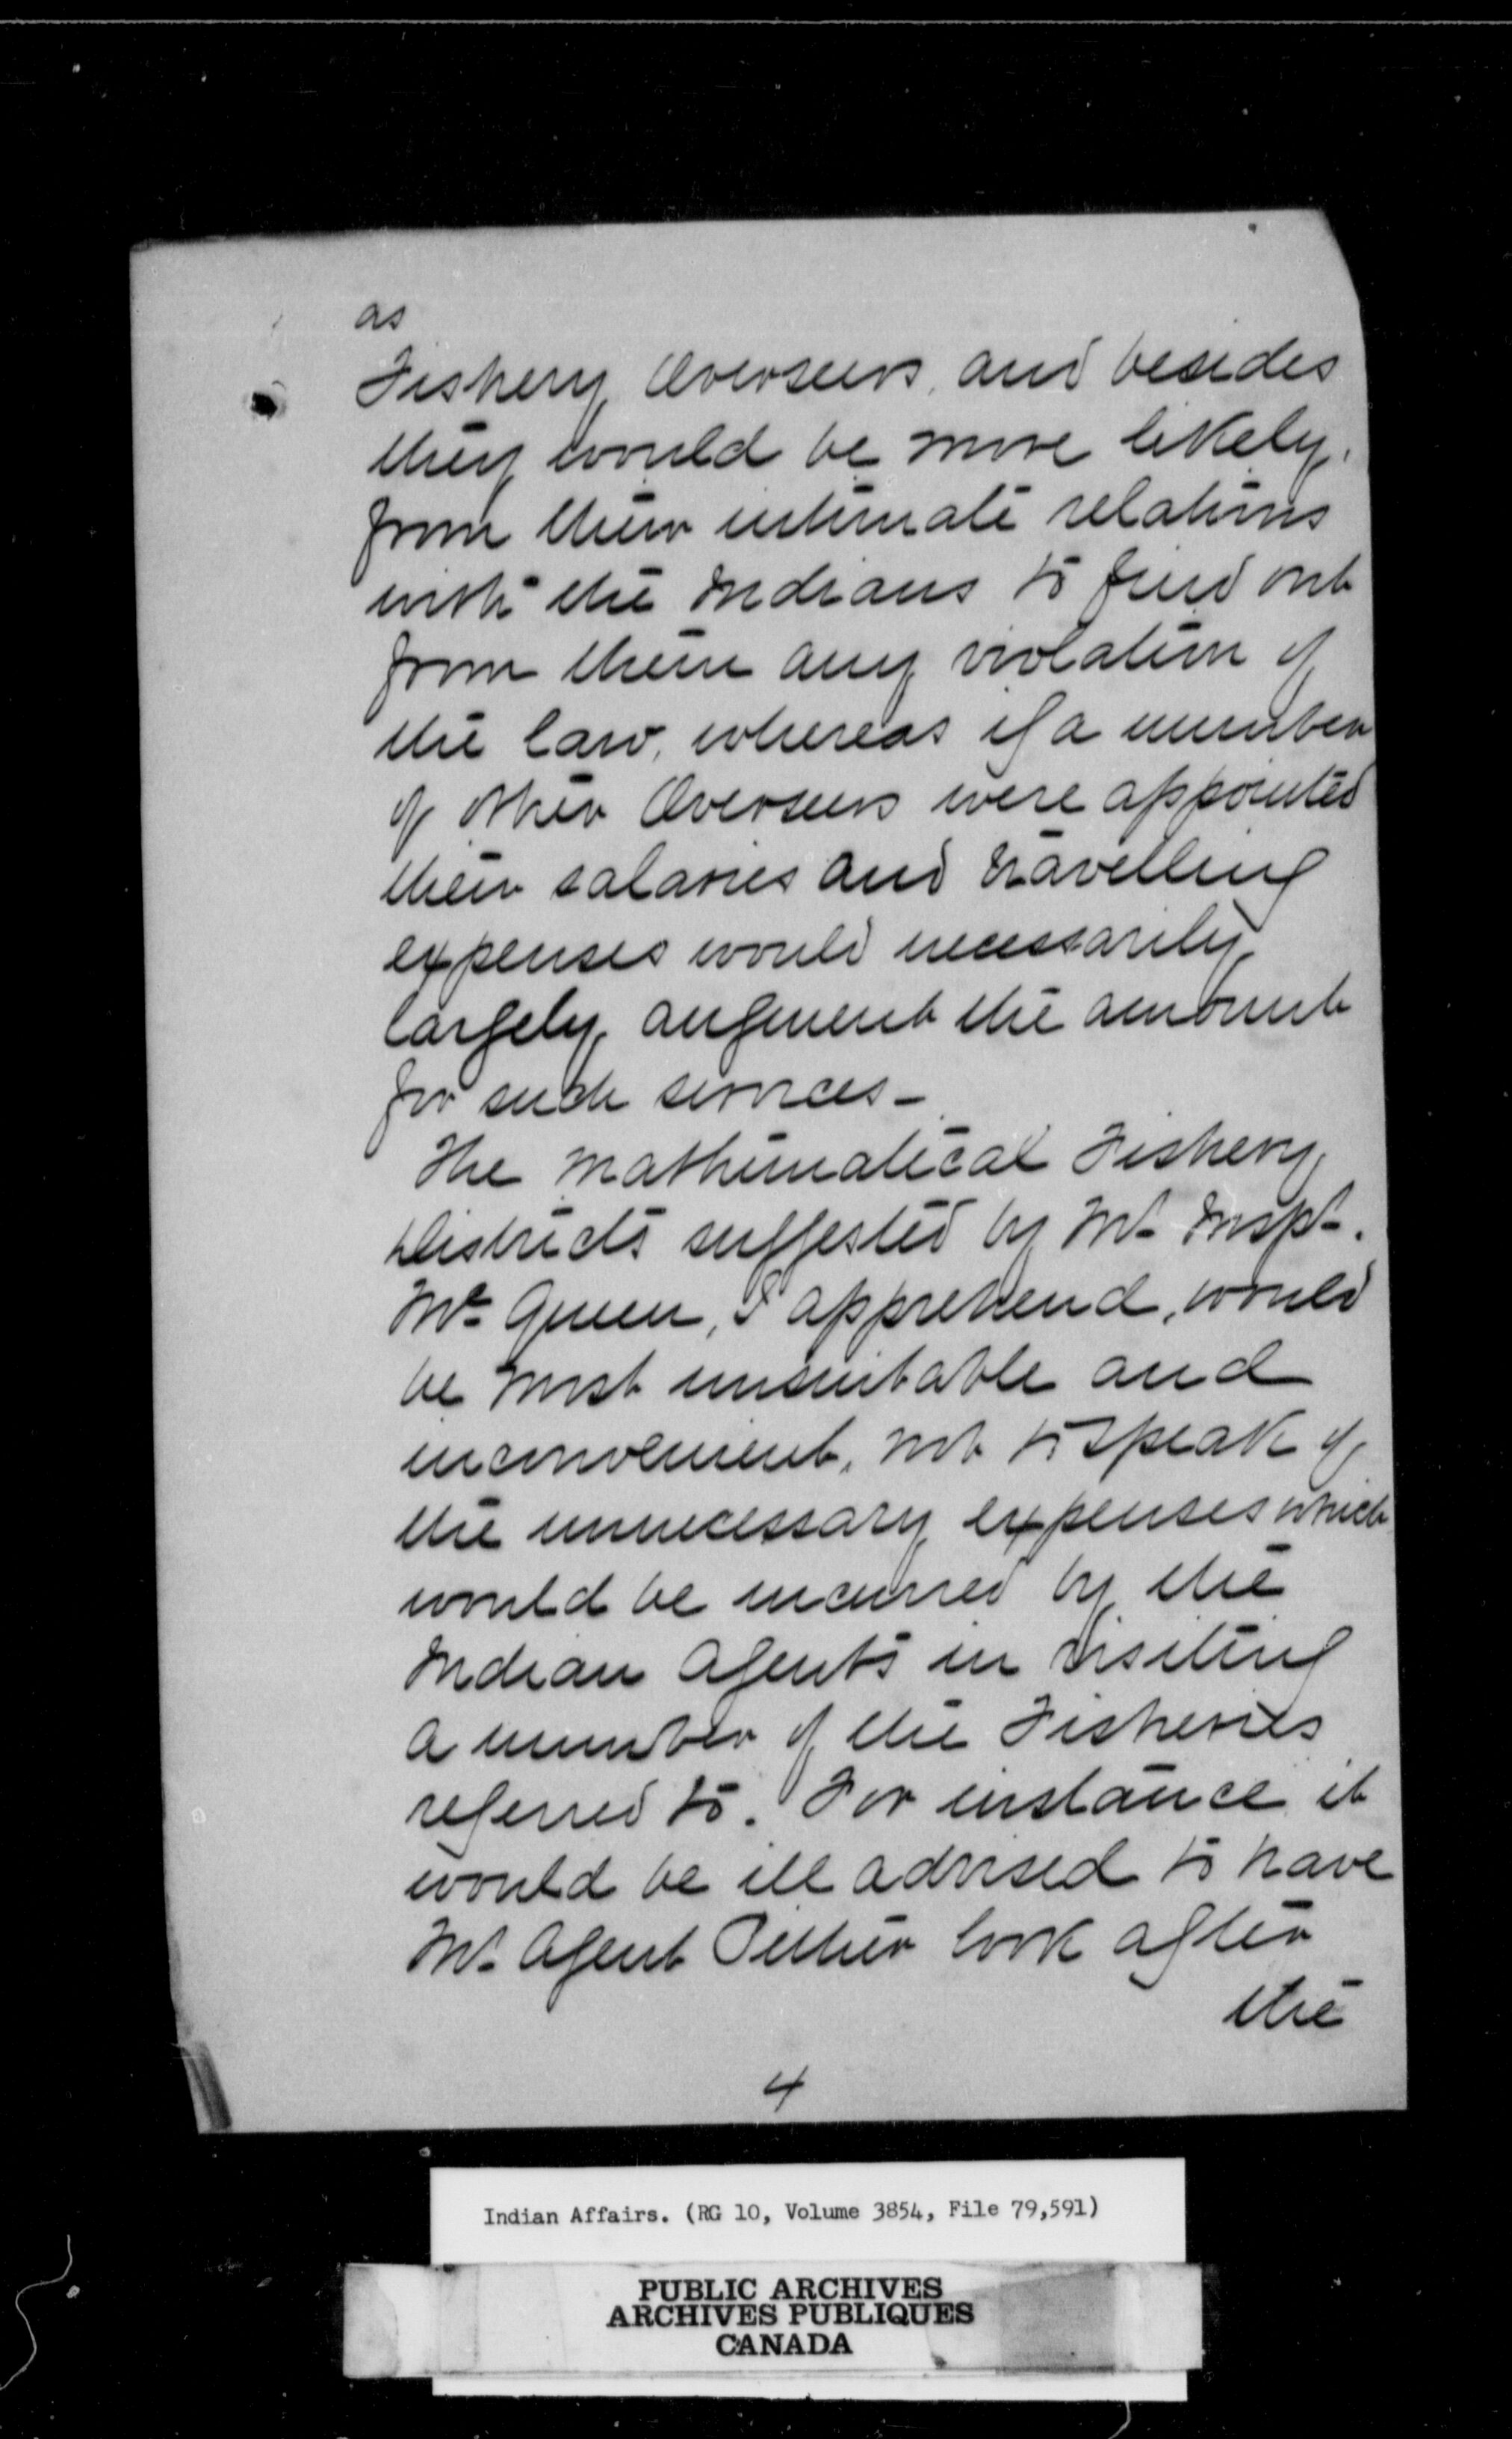 as
Fishery Overseers, and besides
they would be more likely,
from their intimate relations
with the Indians to find out
from them any violation of
the law, whereas if a number
of other Overseers were appointed
their salaries and travelling
expenses would necessarily
largely augment the amount
for such services –
The mathematical Fishery
Districts suggested by Mr. Inspr.
McQueen, I apprehend, would
be most unsuitable and
inconvenient, not to speak of
the unnecessary expenses which
would be incurred by the
Indian Agents in visiting
a number of the Fisheries
referred to. For instance it
would be ill advised to have
Mr. Agent Pither look after
the
4
Indian Affairs. (RG 10, Volume 3854, File 79,591)
PUBLIC ARCHIVES
ARCHIVES PUBLIQUES
CANADA